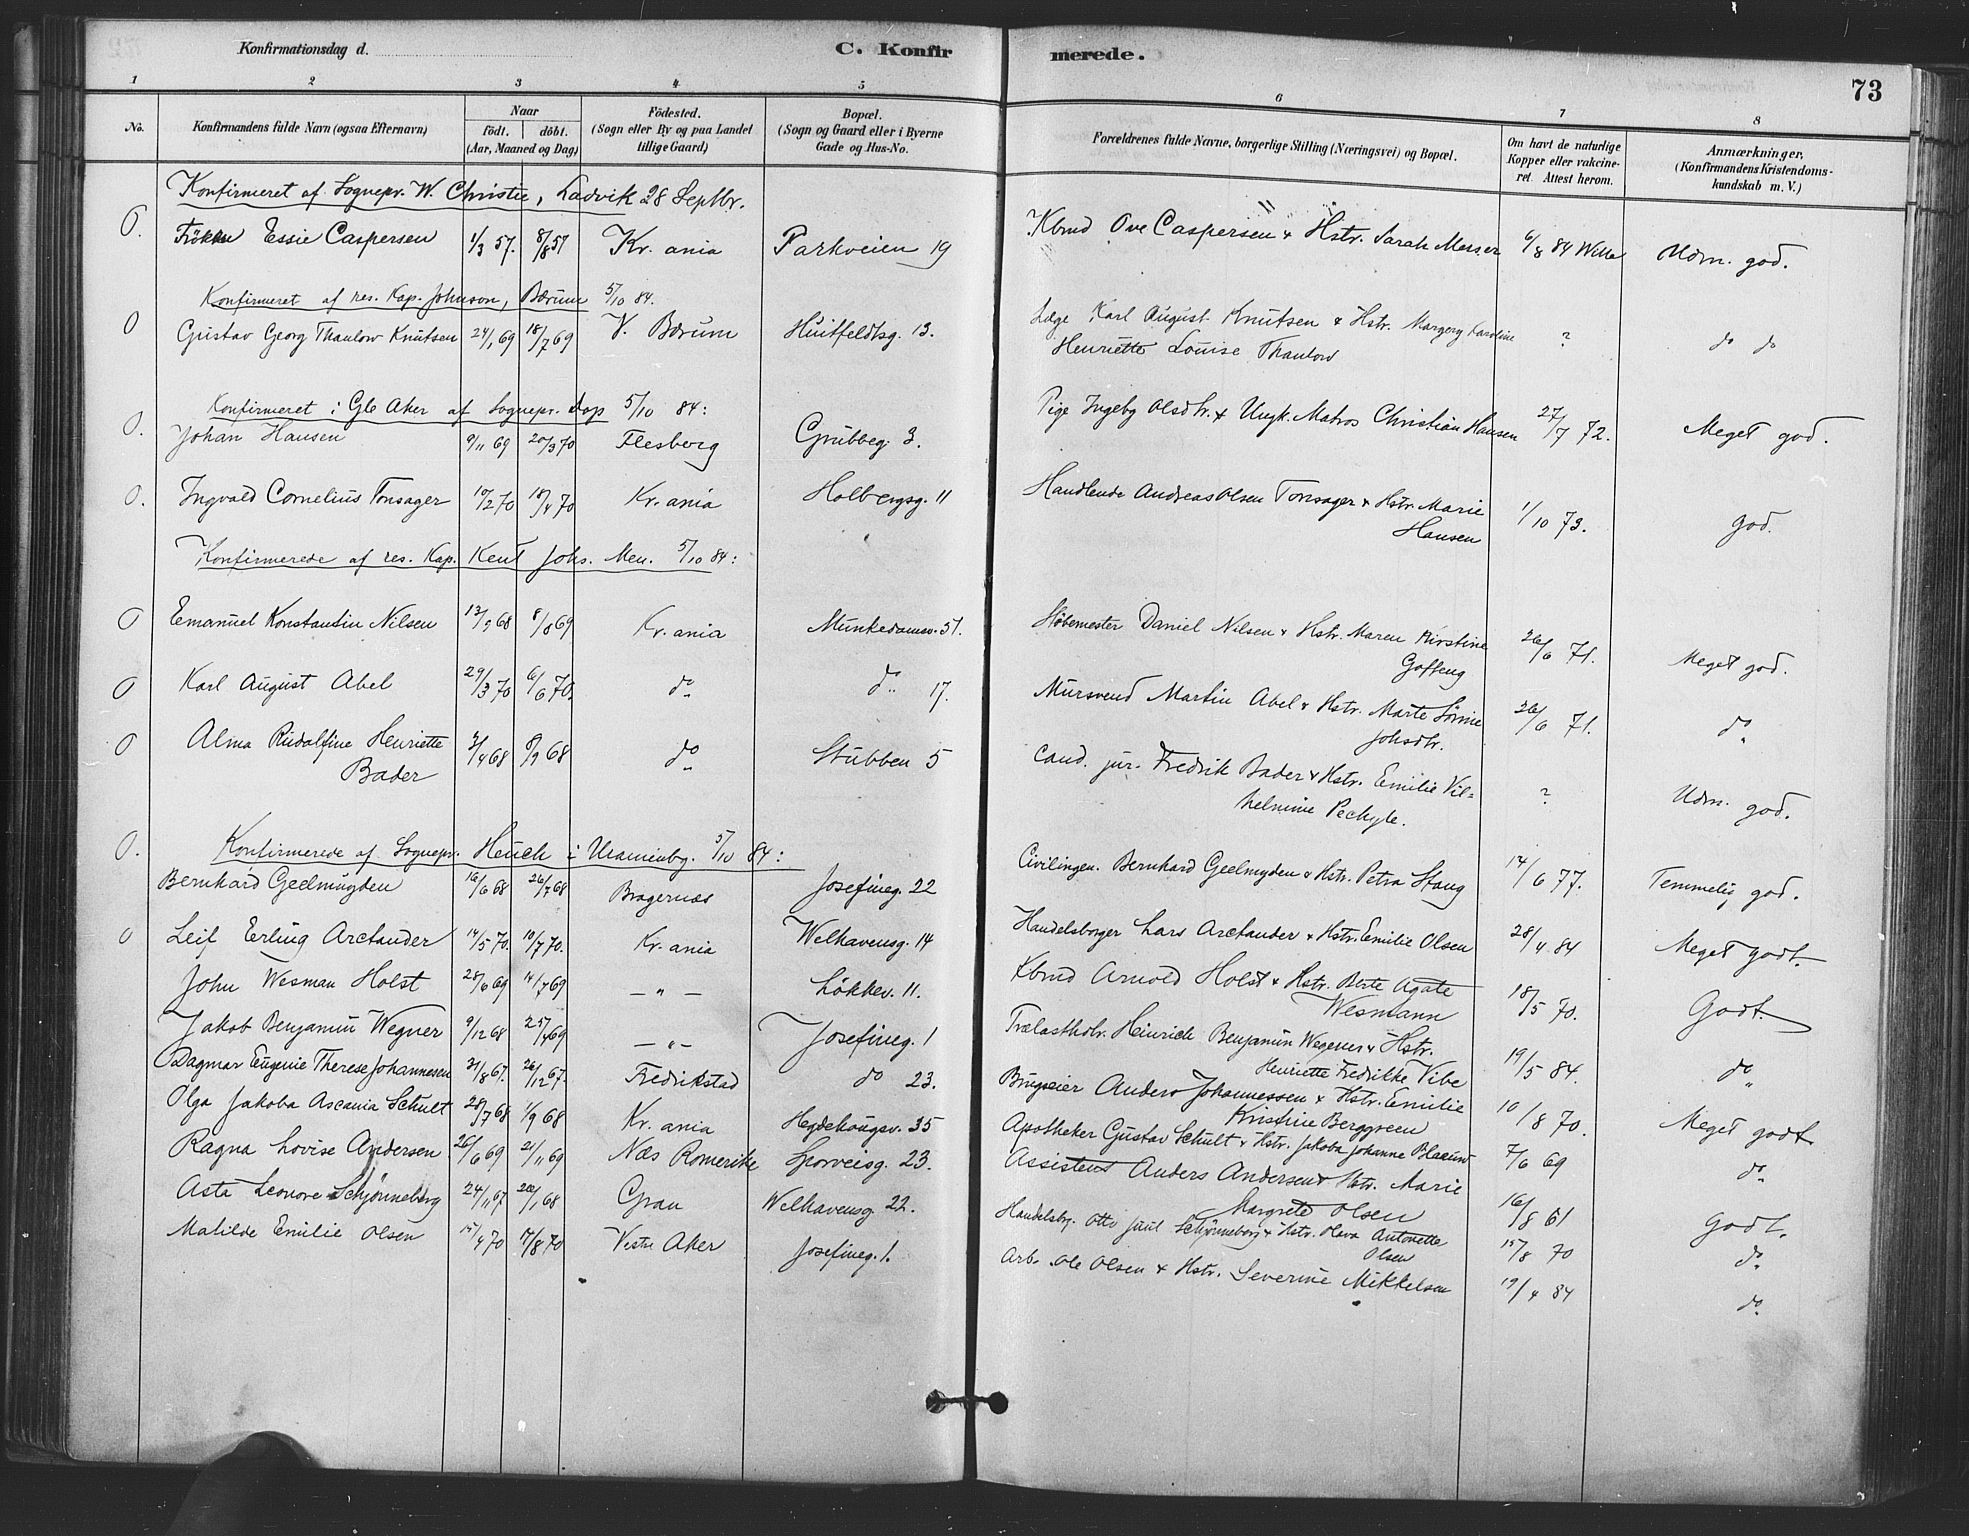 Konfirmationsdag d.
C. Konfir
merede.
73
1 2 3 4 5 6 7 8
No.
Konfirmandens fulde Navn (ogsaa Efternavn)
Naar
födt. döbt.
(Aar, Maaned og Dag)
Födested.
(Sogn eller By og paa Landet
tillige Gaard)
Bopæl.
(Sogn og Gaard eller i Byerne
Gade og Hus-No.
Forældrenes fulde Navne, borgerlige Stilling (Næringsvei) og Bopæl.
Om havt de naturlige
Kopper eller vakcine-
ret. Attest herom.
Anmærkninger.
(Konfirmandens Kristendoms-
kundskab m. V.)
Konfirmeret af Sognepr. W. Christie, Ladvik 28 Septbr.
0. Frökn Essie Caspersen 1/3 57. 8/8 57 Kr.ania Parkveien 19 Kbmd Ove Caspersen & Hstr. Sarah Messer 6/8 84 Wille Udm. god.
Konfirmeret af res. Kap. Johnson, Bærum 5/10 84.
0 Gustav Georg Thaulow Knutsen 24/1 69 18/7 69 V. Bærum Huitfeldtsg. 13. Læge Karl August Knutsen & Hstr. Margery Karoline ? do do
Henriette Louise Thaulow
Konfirmeret i Gle Aker af Sognepr. Jop 5/10 84:
0. Johan Hansen 9/11 69 20/3 70 Flesberg Grubbeg. 3. Pige Ingebg Olsdtr. & Ungk. Matros Christian Hansen 27/7 72. Meget god.
0. Ingvald Cornelius Tonsager 10/2 70 18/4 70 Kr.ania Holbergsg. 11 Handlende Andreas Olsen Tonsager & Hstr. Marie 1/10 73. god.
Hansen
Konfirmerede af res. Kap. Kent Johs. Men. 5/10 84:
0 Emanuel Konstantin Nilsen 13/9 68 8/8 69 Kr.ania Munkedamsv. 51. Støbemester Daniel Nilsen & Hstr. Maren Kirstine 26/6 71. Meget god.
Goffeng
0 Karl August Abel 29/3 70 6/6 70. do do 17. Mursvend Martin Abel & Hstr. Marte Sörine 26/6 71. do
Johsdtr.
0 Alma Rudolfine Henriette 3/4 68 8/9 68 do Stubben 5 Cand. jur. Fredrik Bader & Hstr. Emilie Vil= ? Udm. god.
Bader helmine Pechyle.
Konfirmerede af Sognepr. Heuch i Uranienbg. 5/10 84:
0. Bernhard Geelmuyden 16/6 68 26/7 68 Bragernæs Josefineg. 22 Civilingen. Bernhard Geelmyden & Hstr. Petra Stang 14/6 77. Temmelig god.
0 Leif Erling Arctander 14/5 70. 10/7 70. Kr.ania Welhavensg. 14 Handelsborger Lars Arctander & Hstr. Emilie Olsen 28/4 84 Meget godt.
John Wesman Holst 28/6 69 14/7 69 — " — Lökkev. 11. Kbmd Arnold Holst & Hstr. Berte Agate 18/5 70. Godt.
Wesmann
Jakob Benjamin Wegner 9/12 68 25/4 69 — " — Josefineg. 1 Trælasthdlr. Heinrich Benjamin Wegener & Hstr. 19/5 84. do
Henriette Fredrikke Vibe
Dagmar Eugenie Therese Johannesen 31/8 67. 26/12 67. Fredrikstad do 23. Brugseier Anders Johannessen & Hstr. Emilie 10/8 70. Meget godt
Kristine Berggreen
Olga Jakoba Ascania Schult 28/7 68 1/9 68 Kr.ania Hegdehougsv. 35 Apotheker Gustav Schult & Hstr. Jakoba Johanne 7/6 69 do
Ragna Lovise Andersen 26/6 69 21/11 69 Næs Romerike Sporveisg. 23. Assistent Anders Andersen & Hstr. Marie 16/8 61 Godt.
Margrete Olsen
Asta Leonore Schjønneberg 24/11 67 20/1 68 Gran Welhavensg. 22. Handelsbg. Otto Juul Schjønneborg & Hstr. Olava Antonette 15/8 70 do
Olsen
Matilde Emilie Olsen 15/4 70 17/8 70 Vestre Aker Josefineg. 1. Arb. Ole Olsen & Hstr. Severine Mikkelsen 19/4 84 do